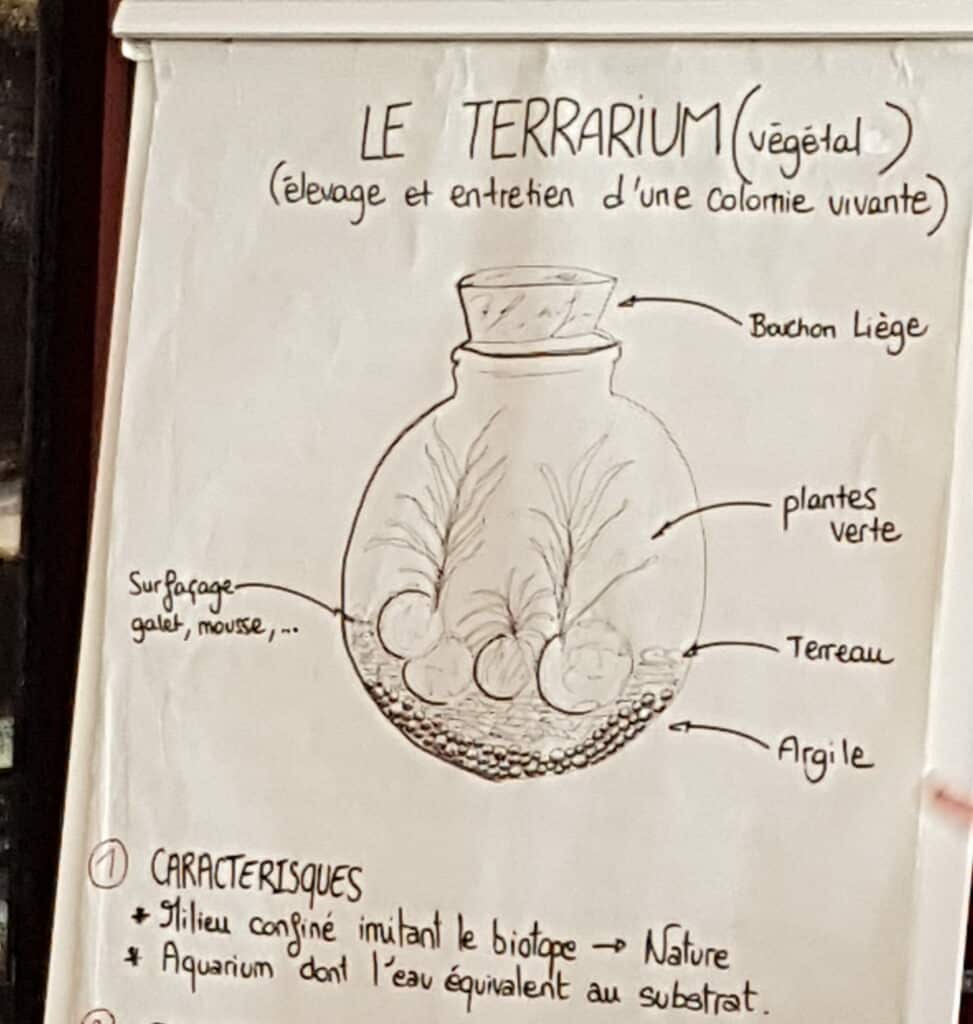 LE TERRARIUM (végétal)
(élevage et entretien d'une colonie vivante)
Bouchon Liège
plantes
verte
Surfaçage
galet, mousse,...
Terreau
Argile
1 CARACTERISQUES
* Milieu confiné imitant le biotope → Nature
* Aquarium dont l'eau équivalent au substrat.